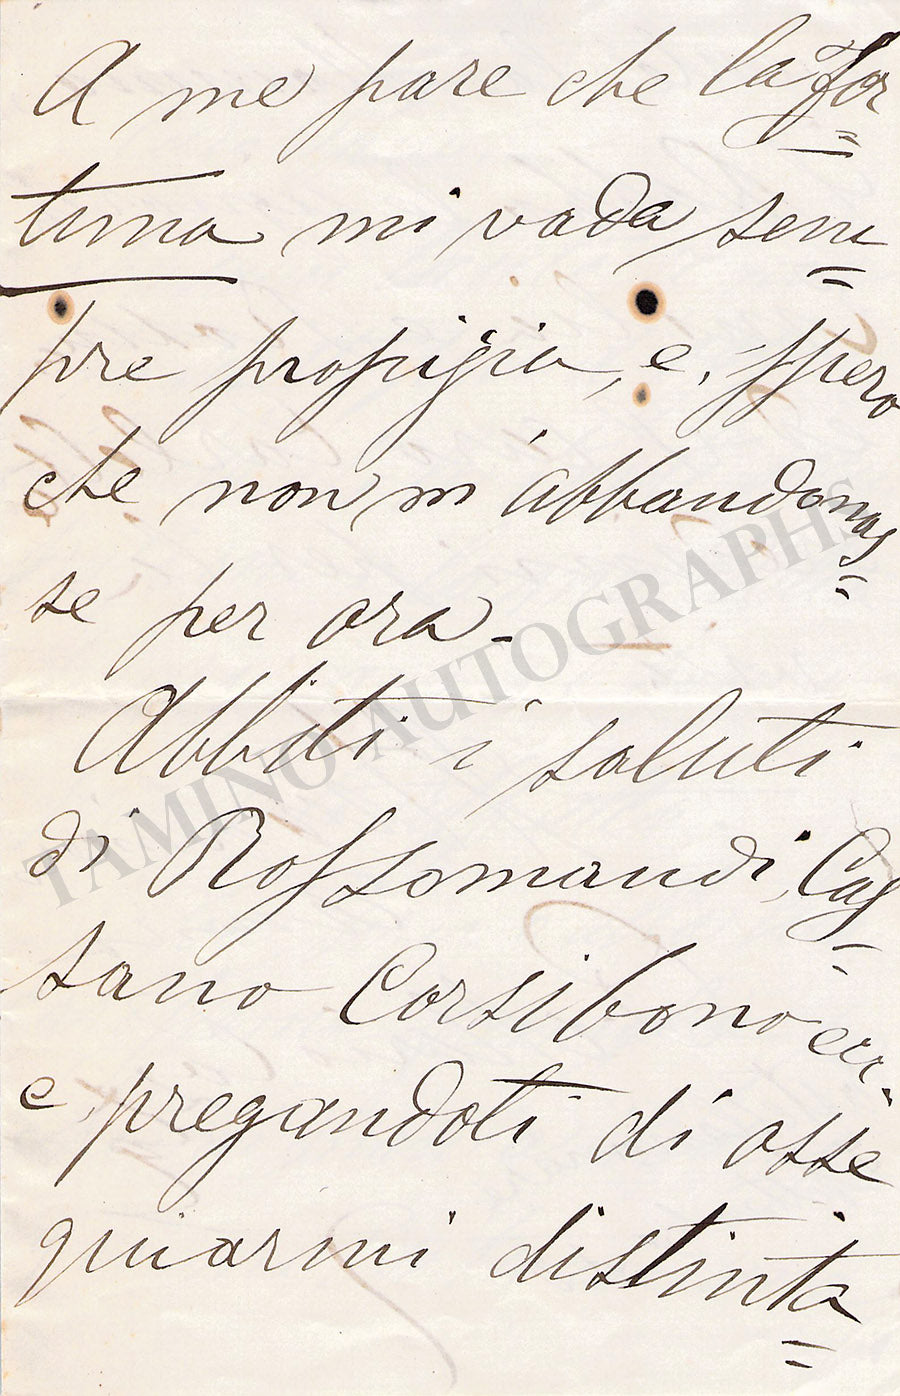 A me pare che la for=
tuna mi vada sem=
pre propizia, e, spero
che non m'abbandonas=
se per ora -
Abbiti i saluti
di Rossomandi, Cas=
sano Corsibono ecc.
e, pregandoti di osse
quiarmi distinta=
TAMINO AUTOGRAPHS